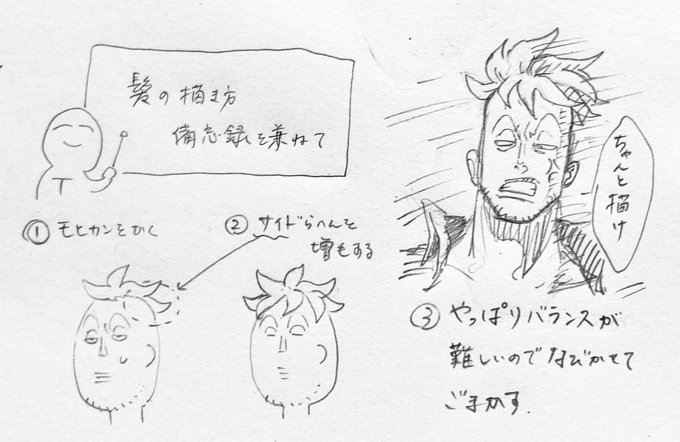 髪の描き方
備忘録を兼ねて
① モヒカンをかく
② サイドらへんを
増もする
ちゃんと描け
③ やっぱりバランスが
難しいのでなびかせて
ごまかす.